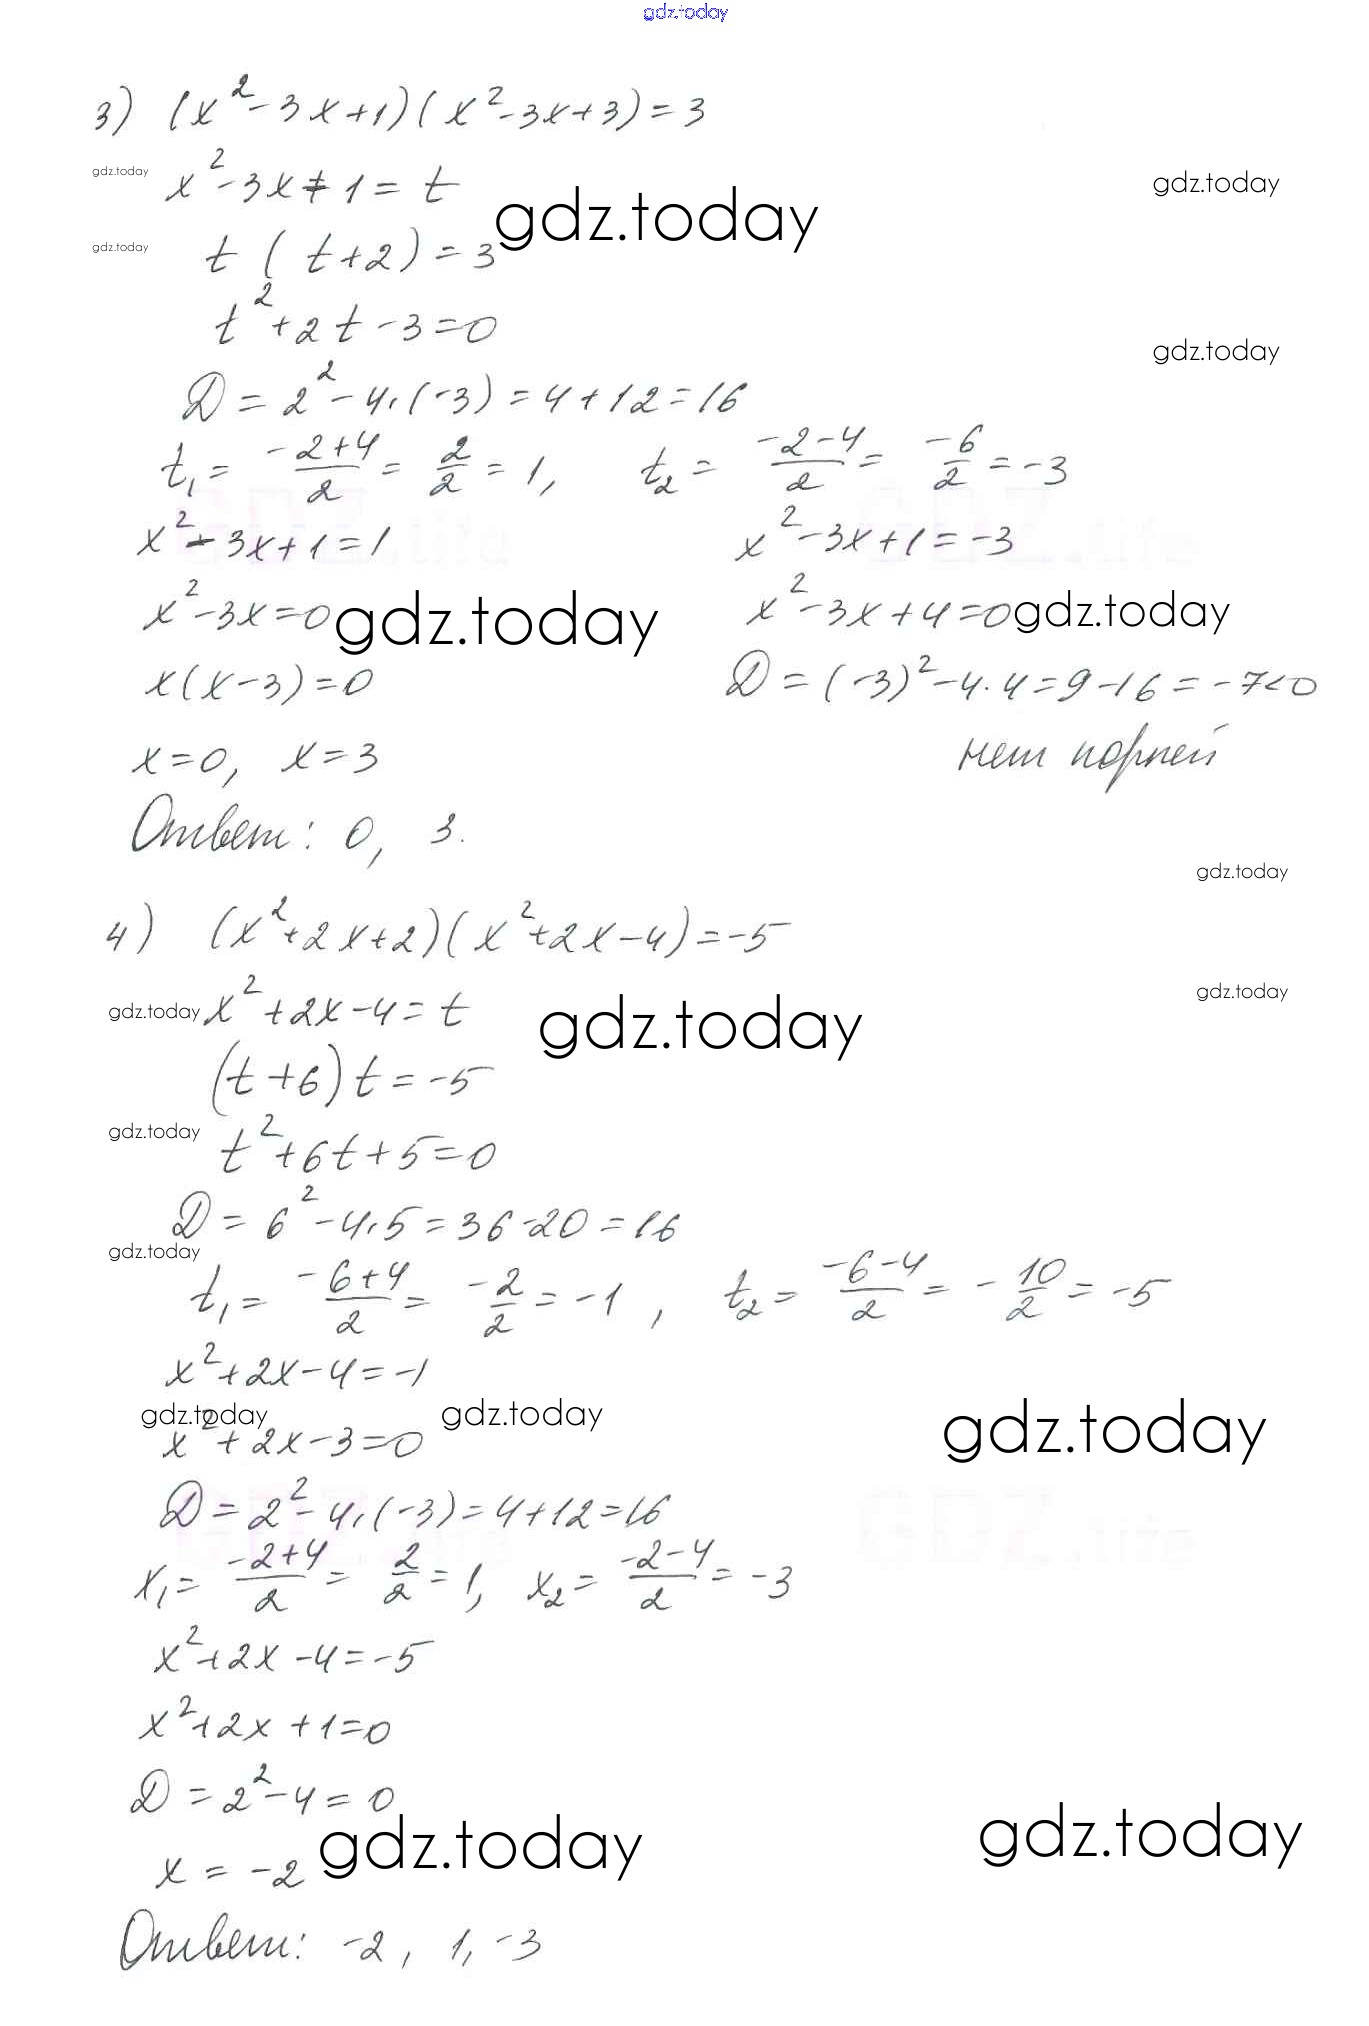 gdz.today
3) (x²-3x+1)(x²-3x+3)=3
gdz.today
x²-3x+1=t
gdz.today
gdz.today
gdz.today
t(t+2)=3
t²+2t-3=0
gdz.today
D=2²-4·(-3)=4+12=16
t₁= (-2+4)/2 = 2/2 =1, t₂= (-2-4)/2 = -6/2 =-3
GDZ.life GDZ.life
x²-3x+1=1 x²-3x+1=-3
x²-3x=0 x²-3x+4=0
gdz.today gdz.today
x(x-3)=0 D=(-3)²-4·4=9-16=-7<0
x=0, x=3 нет корней
Ответ: 0, 3.
gdz.today
4) (x²+2x+2)(x²+2x-4)=-5
gdz.today
gdz.today
x²+2x-4=t
gdz.today
(t+6)t=-5
gdz.today
t²+6t+5=0
D=6²-4·5=36-20=16
gdz.today
t₁= (-6+4)/2 = -2/2 =-1, t₂= (-6-4)/2 = -10/2 =-5
x²+2x-4=-1
gdz.today gdz.today gdz.today
x²+2x-3=0
D=2²-4·(-3)=4+12=16
GDZ.life GDZ.life
x₁= (-2+4)/2 = 2/2 =1, x₂= (-2-4)/2 =-3
x²+2x-4=-5
x²+2x+1=0
D=2²-4=0
gdz.today gdz.today
x=-2
Ответ: -2, 1, -3